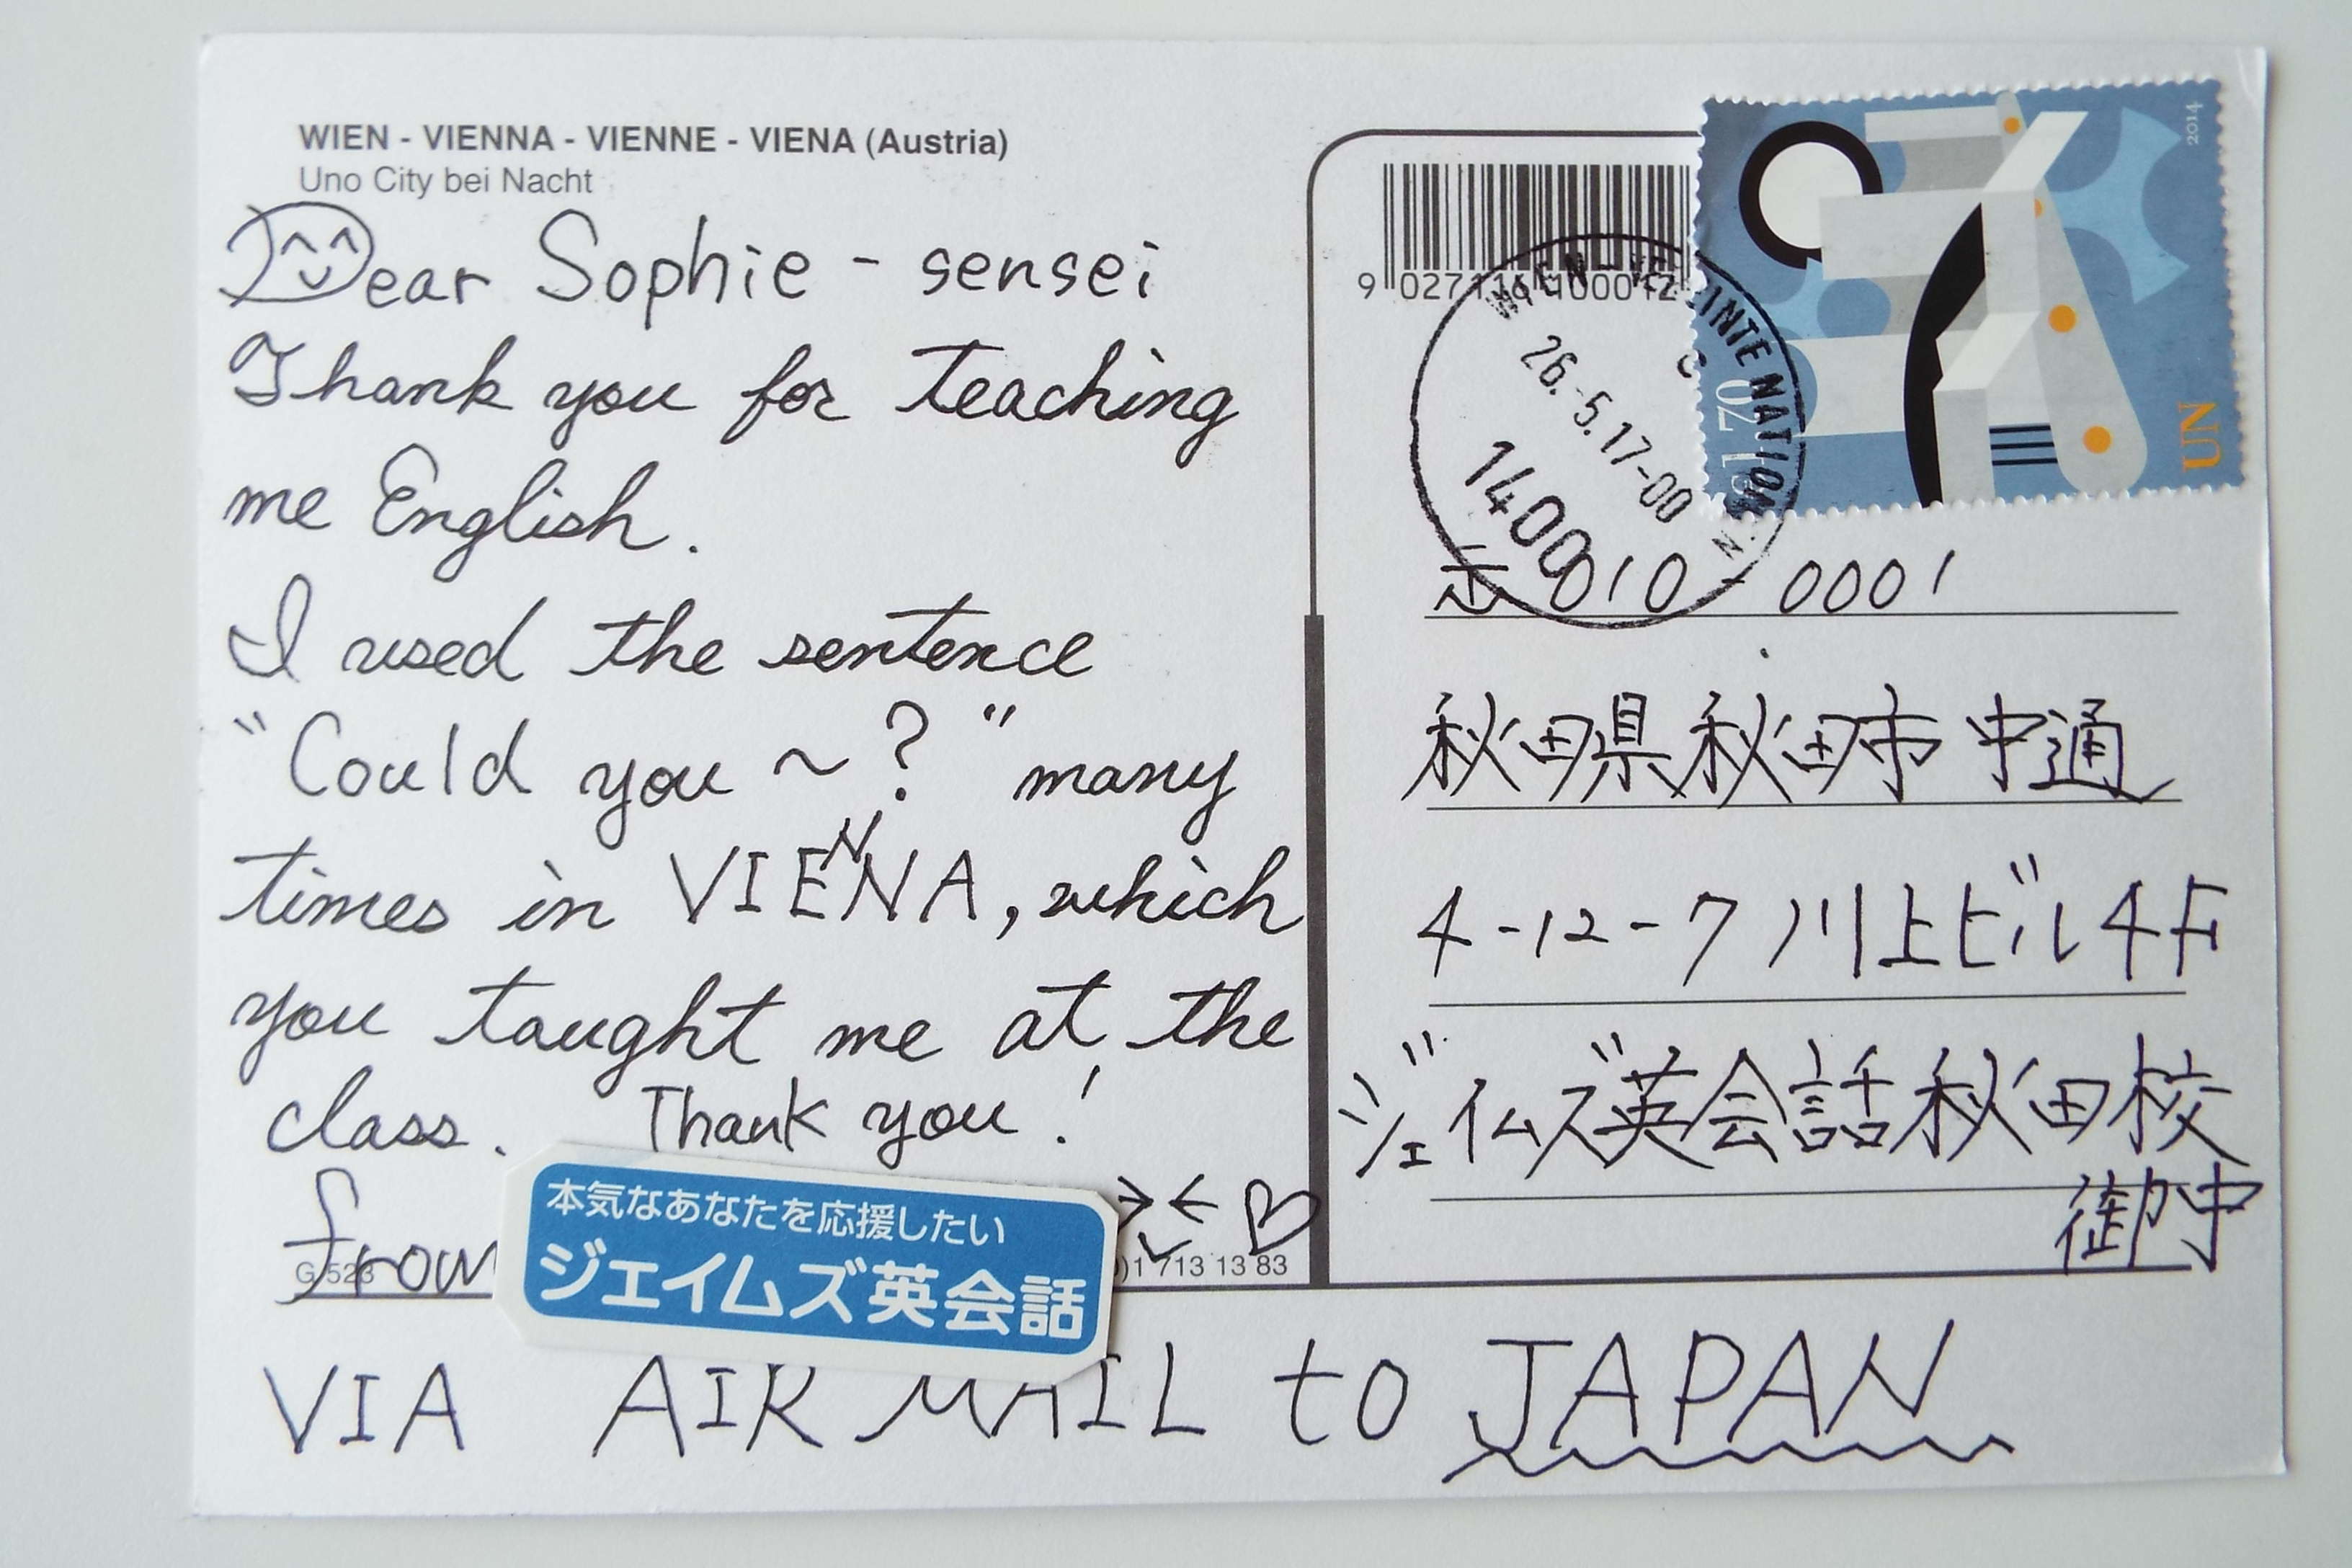 WIEN - VIENNA - VIENNE - VIENA (Austria)
Uno City bei Nacht
Dear Sophie - sensei
Thank you for teaching
me English.
I used the sentence
"Could you ~ ? " many
times in VIENNA, which
you taught me at the
class. Thank you!
from
G 523
)1 713 13 83
本気なあなたを応援したい
ジェイムズ英会話
VIA AIR MAIL to JAPAN
2014
UN
1 70
WIEN - VEREINTE NATIONEN
26.-5.17-00
1400
〒 010 - 0001
秋田県秋田市中通
4-12-7 川上ビル4F
ジェイムズ英会話秋田校
御中